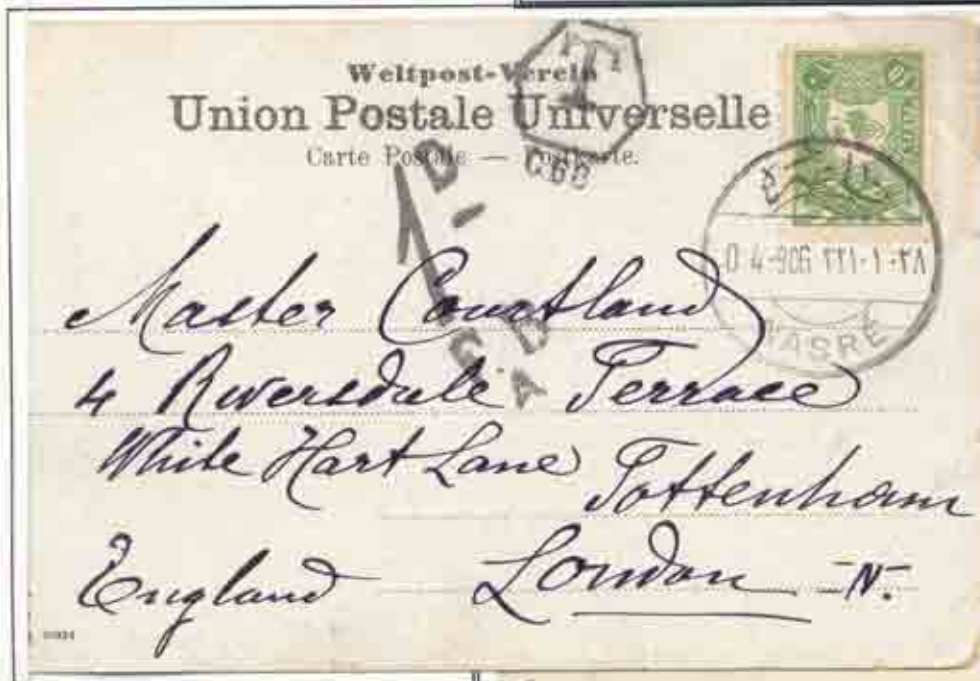 Weltpost-Verein
Union Postale Universelle
Carte Postale — Postkarte.
T
1D
Master Courtland
4 Riversdale Terrace
White Hart Lane Tottenham
England London N.